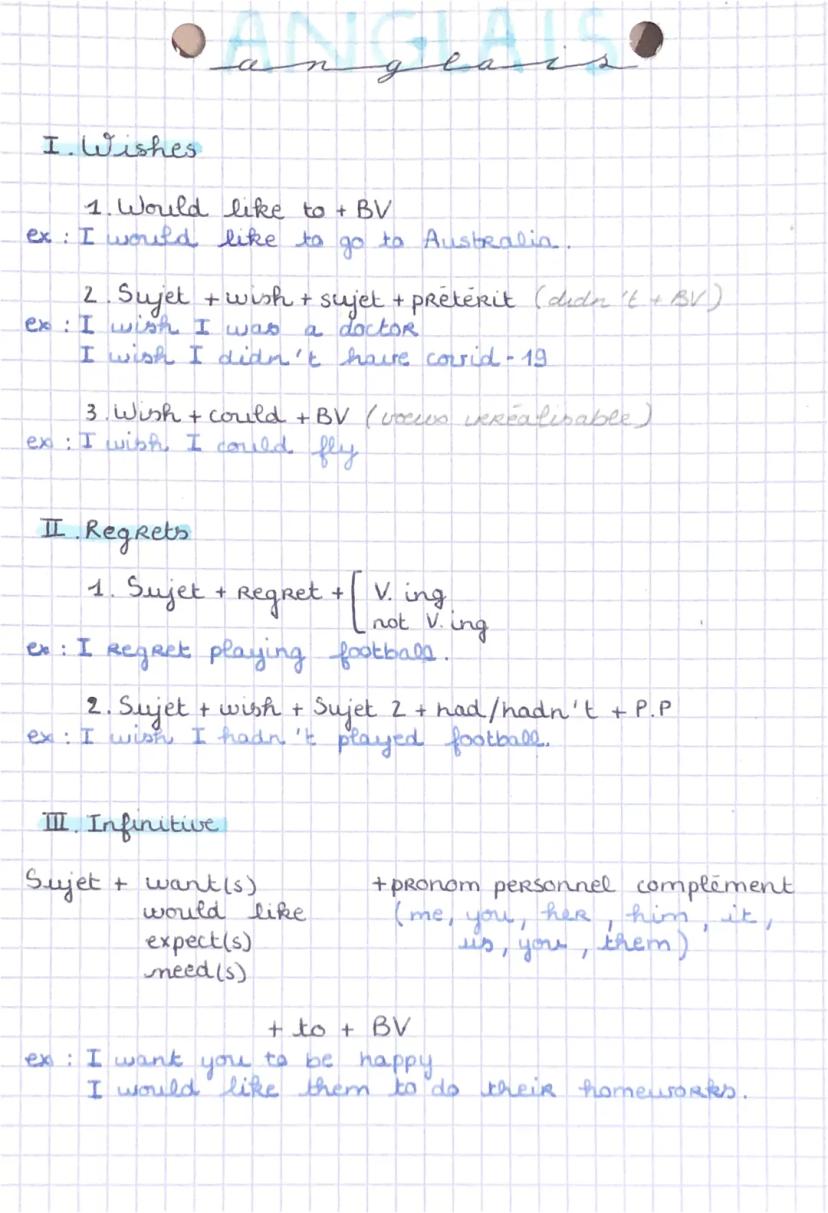 ANGLAIS
anglais
I. Wishes
1. Would like to + BV
ex : I would like to go to Australia.
2. Sujet + wish + sujet + prétérit (didn't + BV)
ex : I wish I was a doctor
I wish I didn't have covid-19
3. Wish + could + BV (voeux irréalisable)
ex : I wish I could fly
II. Regrets
1. Sujet + regret + [ V. ing
not V. ing
ex : I regret playing football.
2. Sujet + wish + Sujet 2 + had/hadn't + P.P
ex : I wish I hadn't played football.
III. Infinitive
Sujet + want(s) + pronom personnel complément
would like (me, you, her, him, it,
expect(s) us, you, them)
need(s)
+ to + BV
ex : I want you to be happy
I would like them to do their homeworks.